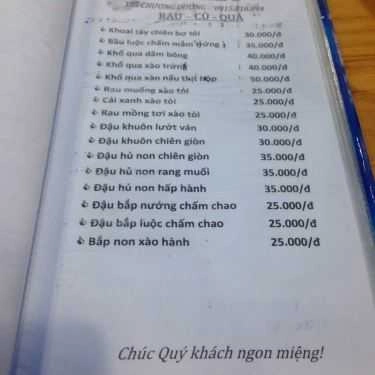 CHƯƠNG DƯƠNG
RAU – CỦ – QUẢ
Khoai tây chiên bơ tỏi 30.000/đ
Bầu luộc chấm mắm trứng 35.000/đ
Khổ qua dầm bông 40.000/đ
Khổ qua xào trứng 40.000/đ
Khổ qua xàn nấu thịt hộp 50.000/đ
Rau muống xào tỏi 25.000/đ
Cải xanh xào tỏi 25.000/đ
Rau mồng tơi xào tỏi 25.000/đ
Đậu khuôn lướt ván 30.000/đ
Đậu khuôn chiên giòn 30.000/đ
Đậu hủ non chiên giòn 35.000/đ
Đậu hủ non rang muối 35.000/đ
Đậu hủ non hấp hành 35.000/đ
Đậu bắp nướng chấm chao 25.000/đ
Đậu bắp luộc chấm chao 25.000/đ
Bắp non xào hành 25.000/đ
Chúc Quý khách ngon miệng!